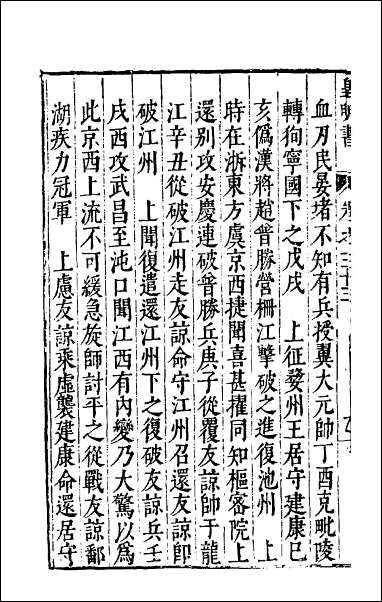 血刃民晏堵不知有兵授翼大元帥丁酉克毗陵
轉狥寧國下之戊戌　上征婺州王居守建康已
亥偽漢將趙普勝營柵江擊破之進復池州　上
時在浙東方虞京西捷聞喜甚擢同知樞密院上
還别攻安慶連破普勝兵庚子從覆友諒師于龍
江辛丑從破江州走友諒命守江州召還友諒即
破江州　上聞復遣還江州下之復破友諒兵壬
戌西攻武昌至沌口聞江西有內變乃大驚以爲
此京西上流不可緩急旋師討平之從戰友諒鄱
湖疾力冠軍　上慮友諒乘虛襲建康命還居守
皇明書
卷之三十三